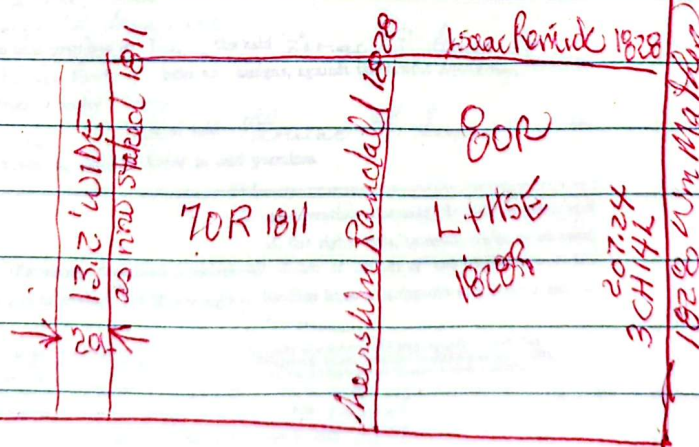 Isaac Renick 1828
13.2' WIDE
as now staked 1811
20
70R 1811
heirs Wm Randall 1828
80R
L+HSE
1828R
207.24
3CH14L
1828 Wm Mather